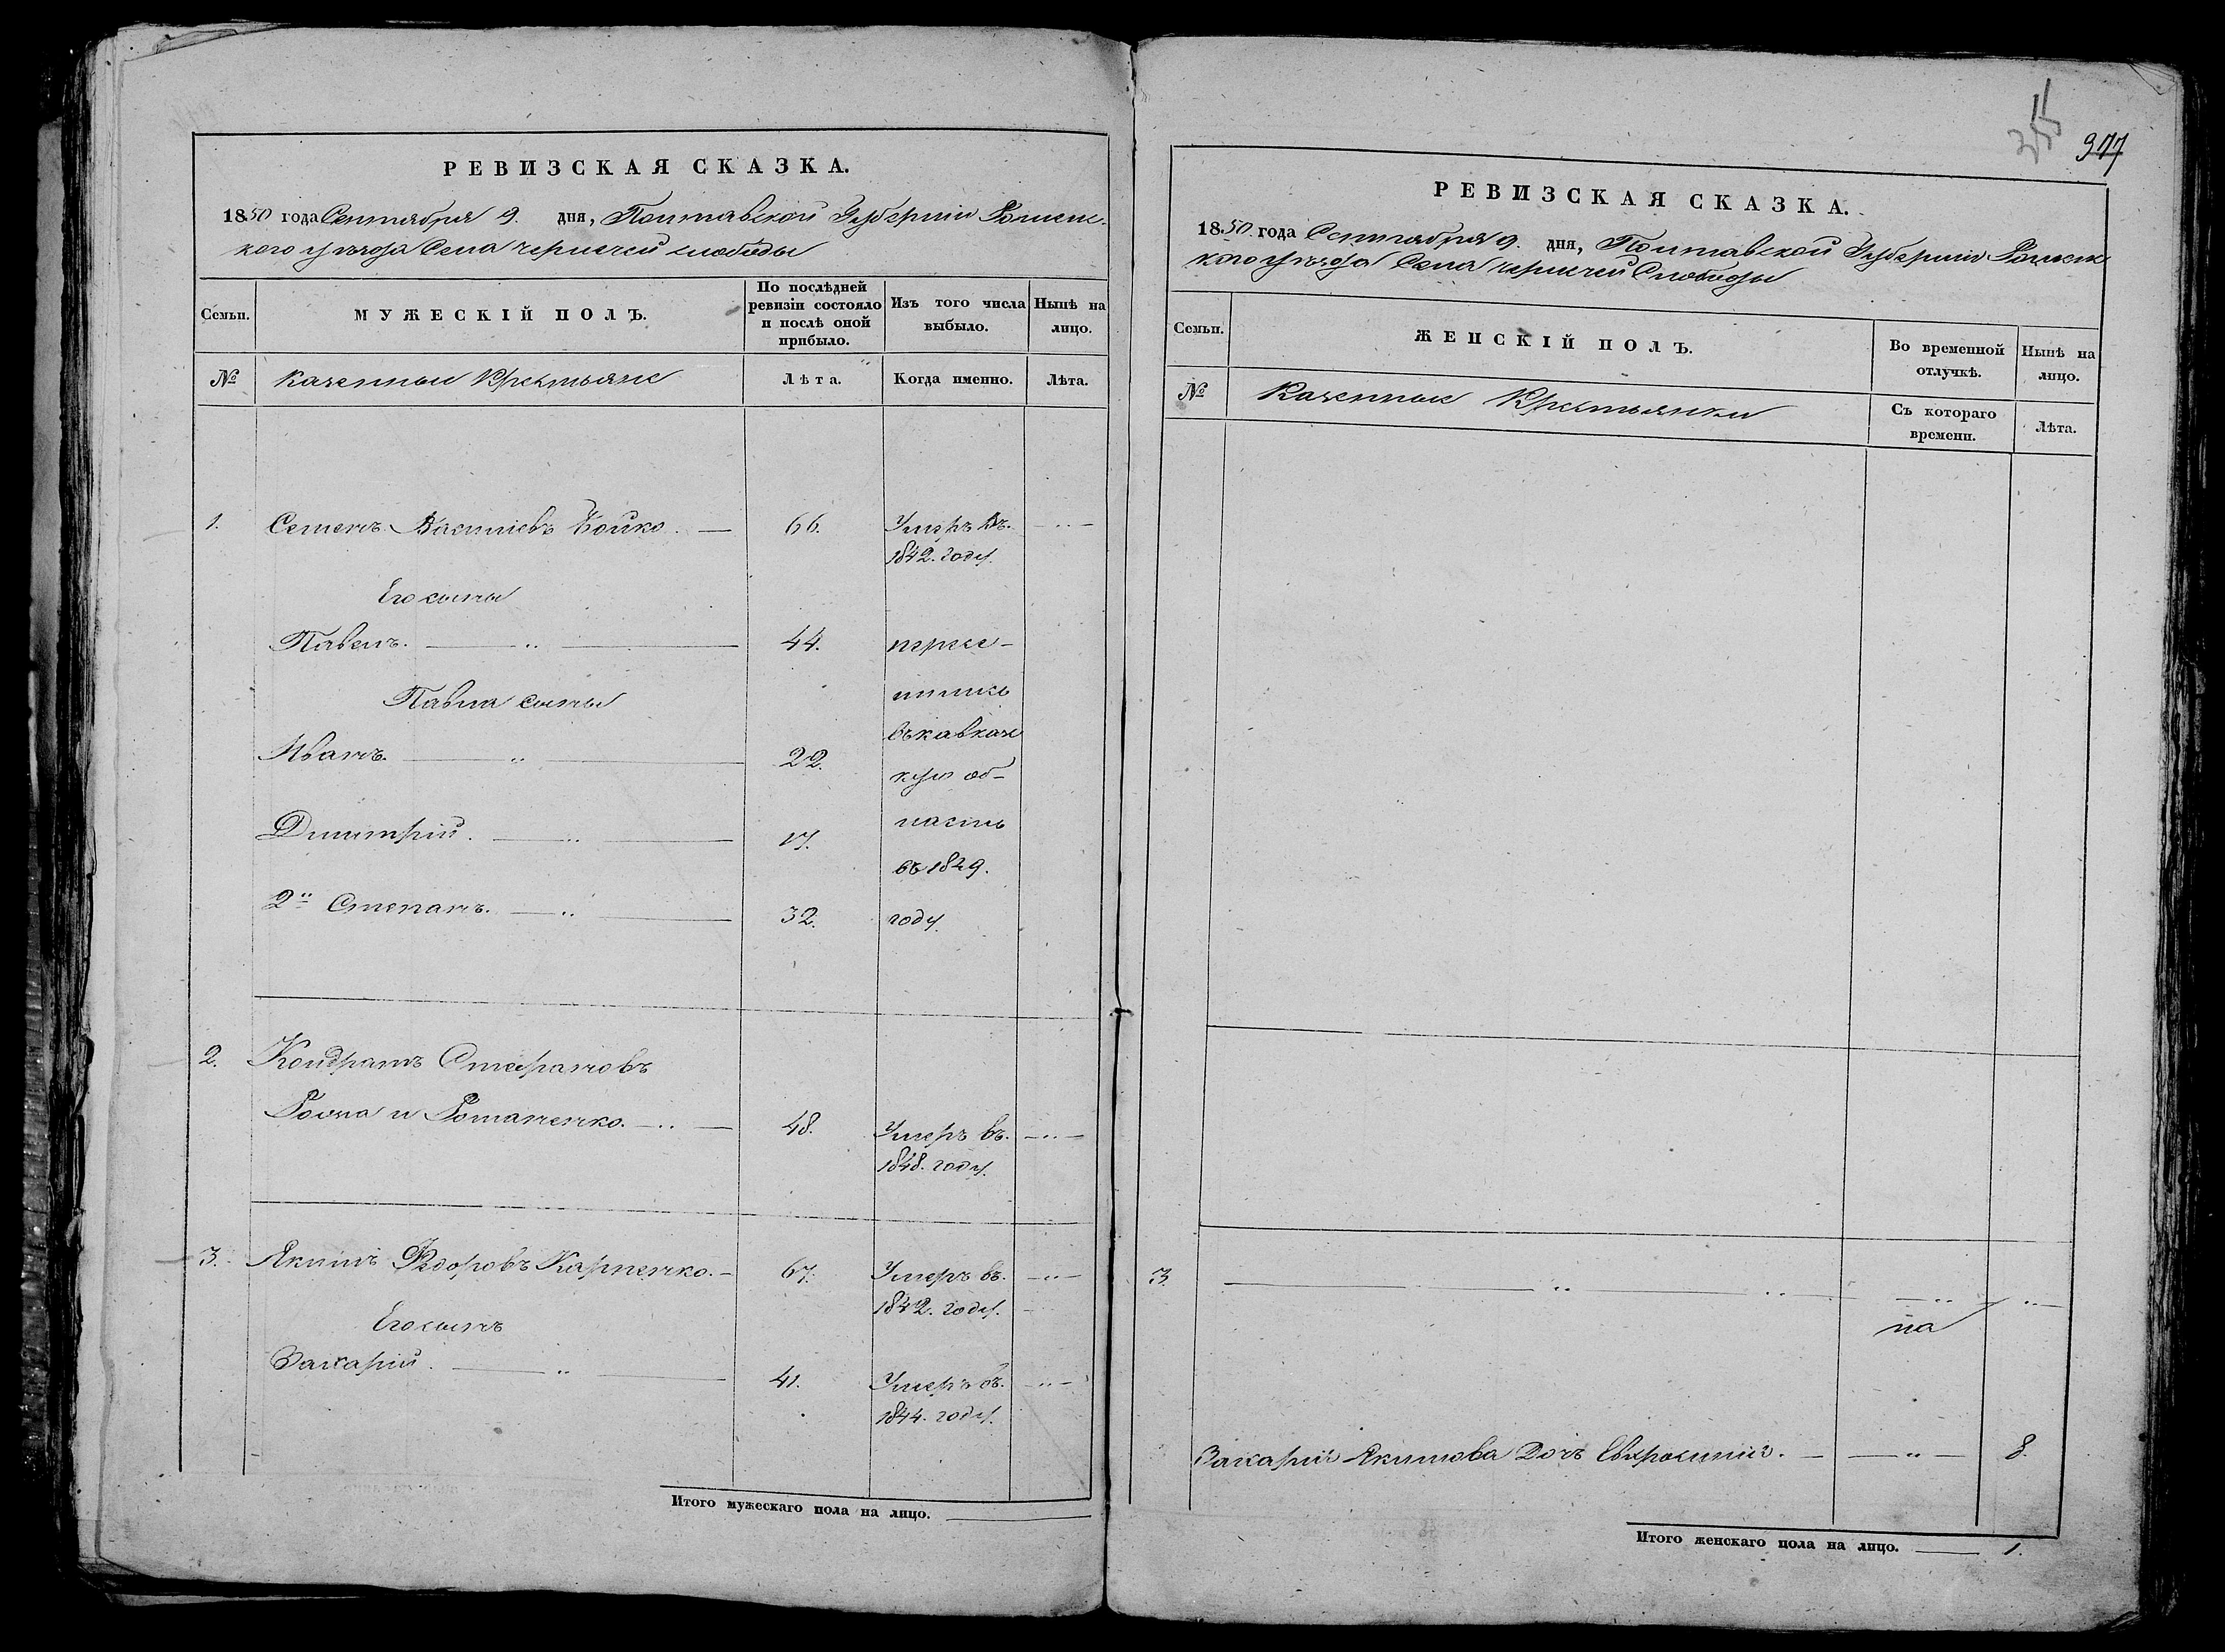 РЕВИЗСКАЯ СКАЗКА.
1850 года Сентября 9. дня, Полтавской Губерніи Роменс-
кого уезда Села чернечей слободы
Семьи.
МУЖЕСКІЙ ПОЛЪ.
По послѣдней ревизіи состояло и послѣ оной прибыло.
Изъ того числа выбыло.
Нынѣ на лицо.
№
Казенные Крестьяне
Лѣта.
Когда именно.
Лѣта.
1. Семенъ Василіевъ Бойко. — 66. Умеръ въ. — " —
1842. году.
Его сыны
Павелъ. — " — 44. пересе-
Павла сыны
лились
въ кавказс
Иванъ. — " — 22.
кую об-
Димитрій. — " — 17.
ласть
въ 1829.
2й Степанъ. — " — 32. году.
2. Кондратъ Стефановъ
Романенко. — " — 48. Умеръ въ. — " —
1848. году.
3. Якимъ Федоровъ Карпенко. — 67. Умеръ въ. — " —
1842. году.
Его сынъ
Захарій. — " — 41. Умеръ въ. — " —
1844. году.
Итого мужескаго пола на лицо. —
377
РЕВИЗСКАЯ СКАЗКА.
1850 года Сентября 9. дня, Полтавской Губерніи Роменс-
кого уезда Села чернечей Слободы
Семьи.
ЖЕНСКІЙ ПОЛЪ.
Во временной отлучкѣ.
Нынѣ на лицо.
№
Казенные Крестьянки
Съ котораго времени.
Лѣта.
3. — " — " — — " — " —
Захарія Якимова Дочь Евфросинія. — — " — 8.
Итого женскаго пола на лицо. — 1.